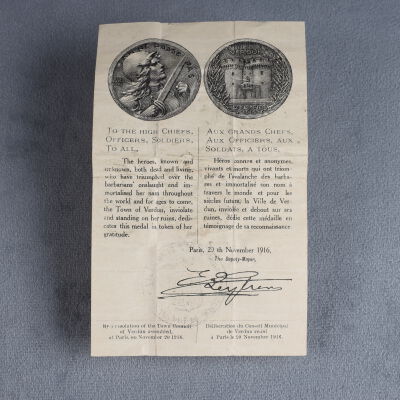 To the high Chiefs,
Officers, Soldiers,
To all,
The heroes, known and
unknown, both dead and living,
who have triumphed over the
barbarians' onslaught and im-
mortalised her name throughout
the world and for ages to come,
the Town of Verdun, inviolate
and standing on her ruins, dedi-
cates this medal in token of her
gratitude.
Aux grands Chefs,
Aux Officiers, aux
Soldats, à tous,
Héros connus et anonymes,
vivants et morts qui ont triom-
phé de l'avalanche des barba-
res et immortalisé son nom à
travers le monde et pour les
siècles futurs, la Ville de Ver-
dun, inviolée et debout sur ses
ruines, dédie cette médaille en
témoignage de sa reconnaissance
Paris, 20 th November 1916.
The Deputy-Mayor,
By a resolution of the Town Council
of Verdun assembled,
at Paris on November 20 1916.
Délibération du Conseil Municipal
de Verdun réuni
à Paris le 20 Novembre 1916.